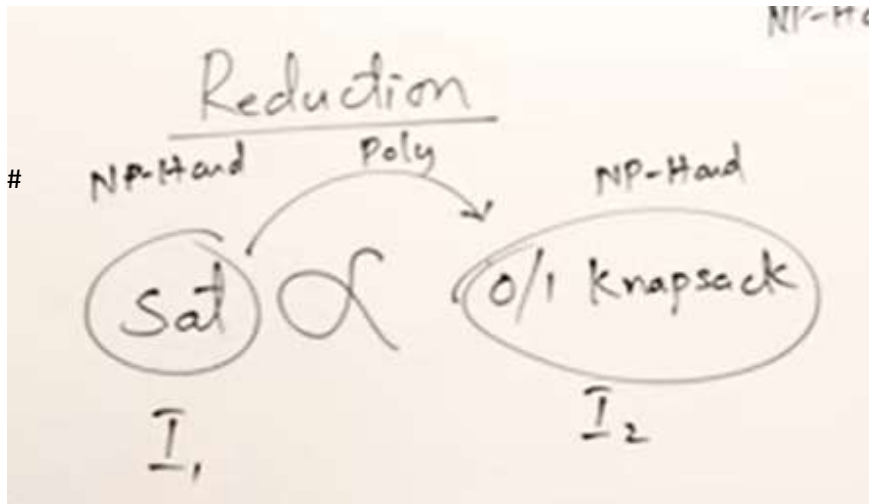 NP-Ha
Reduction
# NP-Hard Poly NP-Hard
Sat ∝ 0/1 Knapsack
I₁ I₂